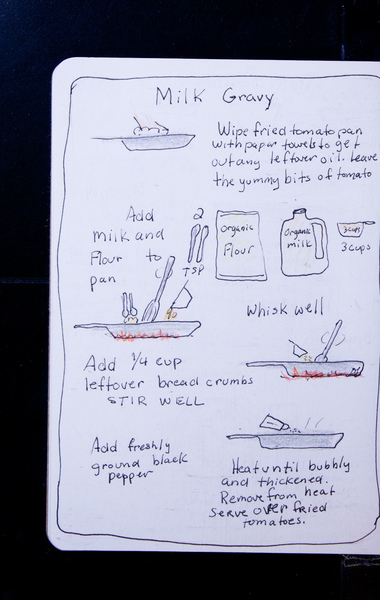 Milk Gravy
Wipe fried tomato pan
with paper towels to get
out any leftover oil. Leave
the yummy bits of tomato
Add
milk and
Flour to
pan
2
TSP
Organic
Flour
Organic
milk
3 cups
3 cups
Whisk well
Add 1/4 cup
leftover bread crumbs
STIR WELL
Add freshly
ground black
pepper
Heat until bubbly
and thickened.
Remove from heat
serve over fried
tomatoes.